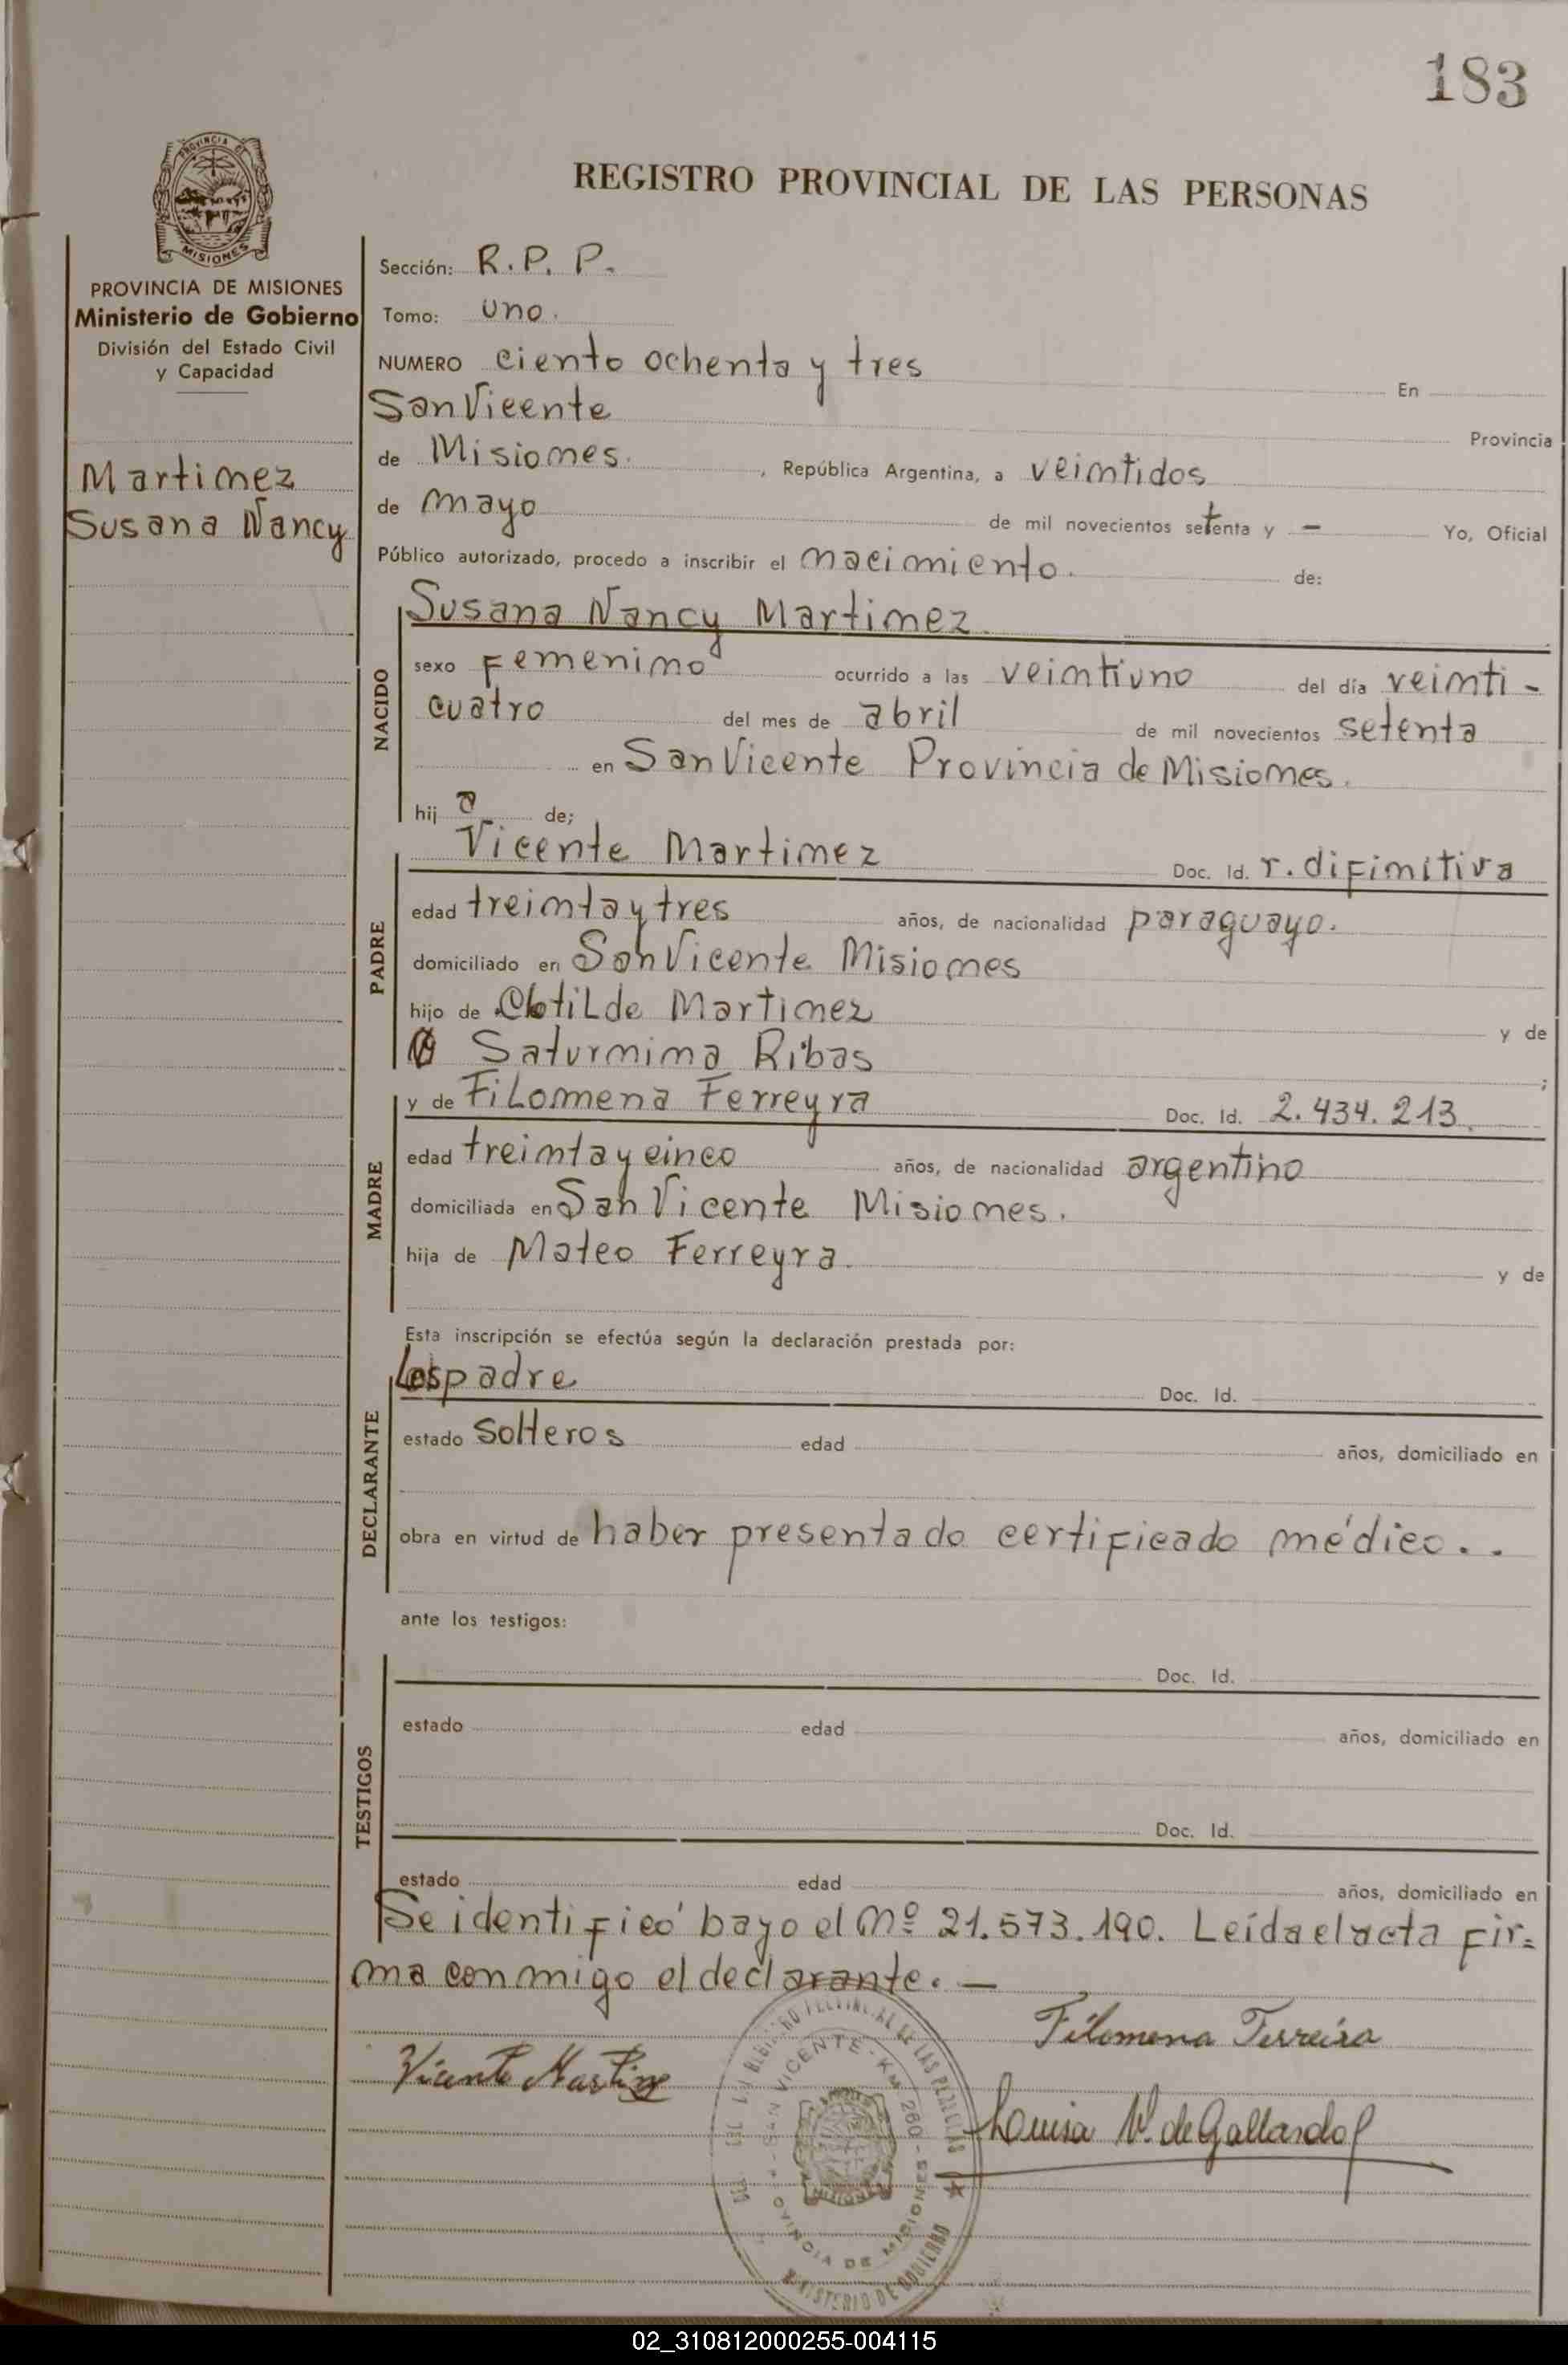 183
PROVINCIA DE
MISIONES
REGISTRO PROVINCIAL DE LAS PERSONAS
PROVINCIA DE MISIONES
Ministerio de Gobierno
División del Estado Civil
y Capacidad
Martimez
Susana Nancy
Sección: R.P.P.
Tomo: uno.
NUMERO ciento ochenta y tres En
San Vicente Provincia
de Misiomes. , República Argentina, a veimtidos
de mayo de mil novecientos setenta y – Yo, Oficial
Público autorizado, procedo a inscribir el nacimiento. de:
NACIDO
Susana Nancy Martimez
sexo Femenimo ocurrido a las veimtiuno del día veimti-
cuatro del mes de abril de mil novecientos setenta
en San Vicente Provincia de Misiomes.
hij a de;
PADRE
Vicente Martimez Doc. Id. r. difimitiva
edad treimta y tres años, de nacionalidad paraguayo.
domiciliado en San Vicente Misiomes
hijo de Clotilde Martimez y de
Saturmima Ribas ;
MADRE
y de Filomena Ferreyra Doc. Id. 2.434.213.
edad treimta y cinco años, de nacionalidad argentino
domiciliada en San Vicente Misiomes.
hija de Mateo Ferreyra. y de
DECLARANTE
Esta inscripción se efectúa según la declaración prestada por:
Los padre Doc. Id.
estado Solteros edad años, domiciliado en
obra en virtud de haber presentado certificado médico..
ante los testigos:
TESTIGOS
Doc. Id.
estado edad años, domiciliado en
Doc. Id.
estado edad años, domiciliado en
Se identificó bayo el nº 21.573.190. Leída el acta fir=
ma conmigo el declarante. —
Filomena Ferreira
Vicente Martinez
Louisa V. de Gallardo
SAN VICENTE - KM 260 -
PROVINCIA DE MISIONES
MISIONES
MINISTERIO DE GOBIERNO
02_310812000255-004115